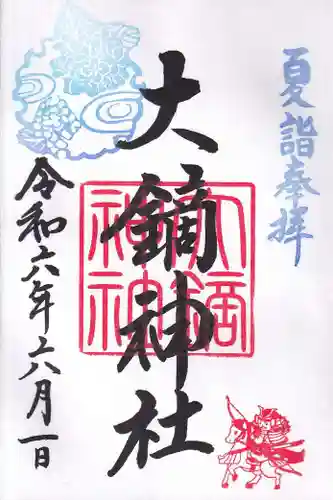 夏詣奉拝
大鏑神社
大鏑
神社
令和六年六月一日